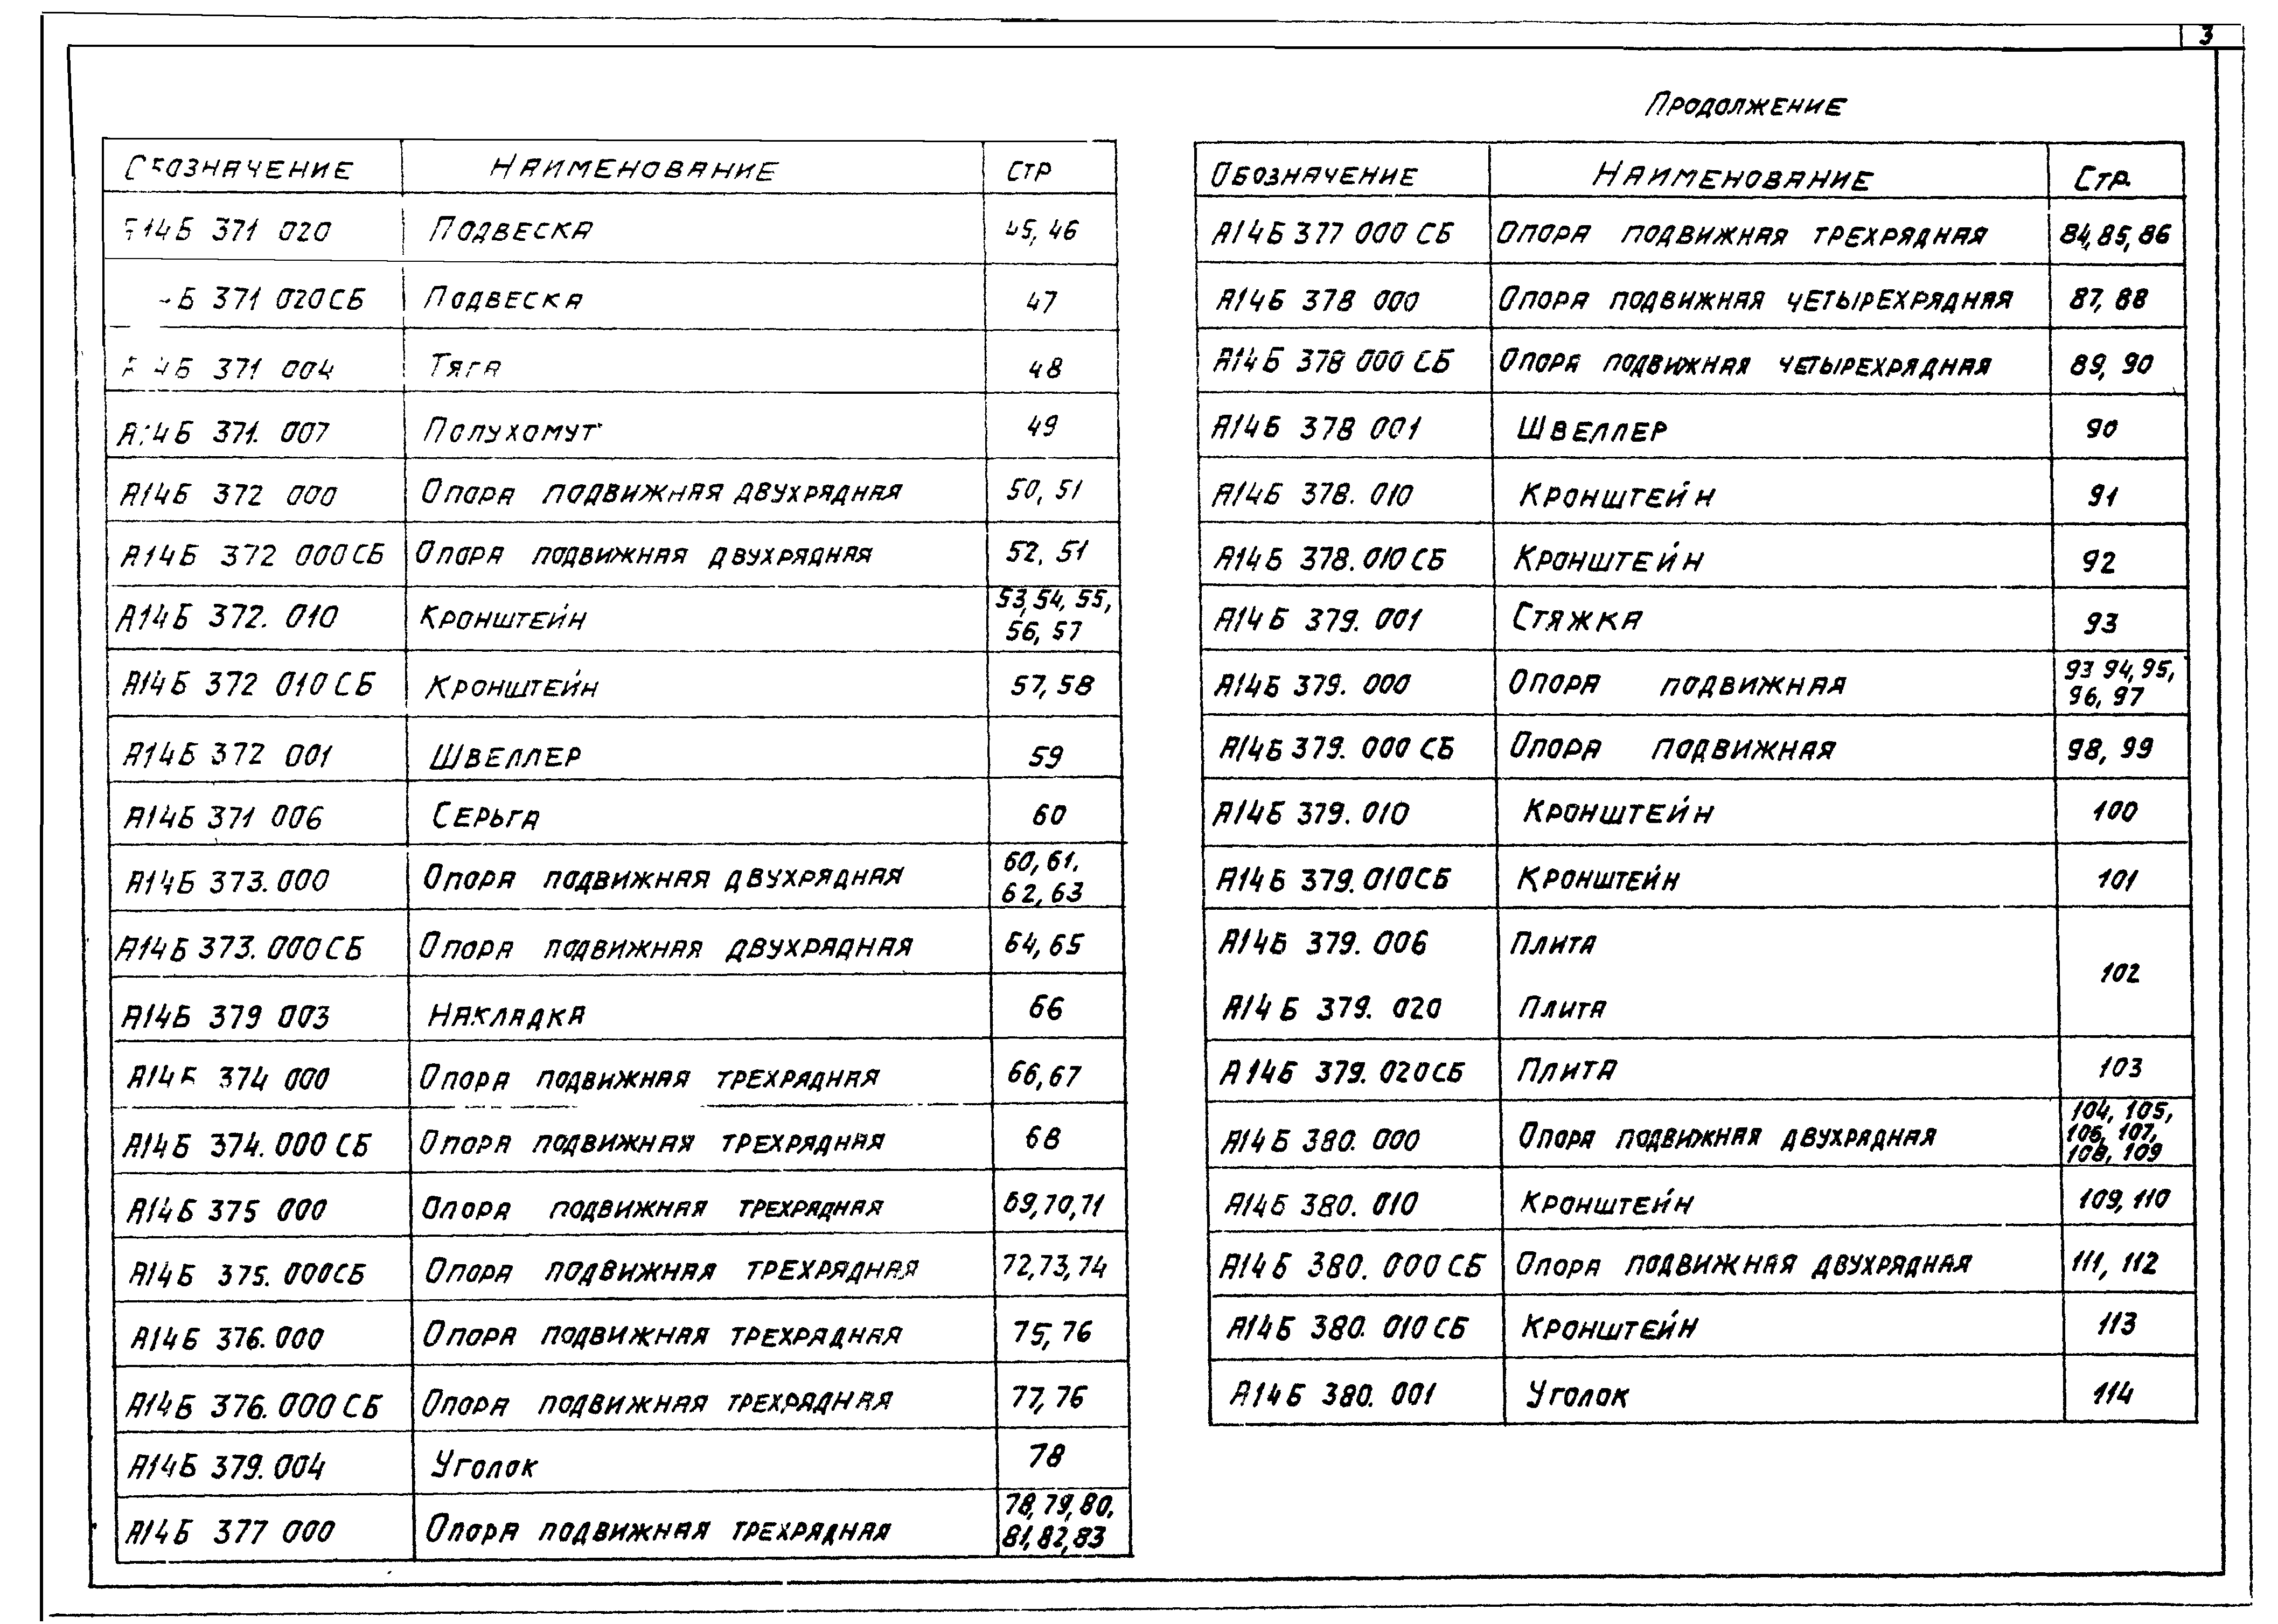 3
Обозначение Наименование Стр
14Б 371 020 Подвеска 45, 46
Б 371 020СБ Подвеска 47
4Б 371 004 Тяга 48
А14Б 371. 007 Полухомут 49
А14Б 372 000 Опора подвижная двухрядная 50, 51
А14Б 372 000СБ Опора подвижная двухрядная 52, 51
А14Б 372. 010 Кронштейн 53, 54, 55,
56, 57
А14Б 372 010 СБ Кронштейн 57, 58
А14Б 372 001 Швеллер 59
А14Б 371 006 Серьга 60
А14Б 373.000 Опора подвижная двухрядная 60, 61,
62, 63
А14Б 373.000СБ Опора подвижная двухрядная 64, 65
А14Б 379 003 Накладка 66
А14Б 374 000 Опора подвижная трехрядная 66, 67
А14Б 374.000 СБ Опора подвижная трехрядная 68
А14Б 375 000 Опора подвижная трехрядная 69, 70, 71
А14Б 375. 000СБ Опора подвижная трехрядная 72, 73, 74
А14Б 376.000 Опора подвижная трехрядная 75, 76
А14Б 376.000 СБ Опора подвижная трехрядная 77, 76
А14Б 379.004 Уголок 78
А14Б 377 000 Опора подвижная трехрядная 78, 79, 80,
81, 82, 83
Продолжение
Обозначение Наименование Стр.
А14Б 377 000 СБ Опора подвижная трехрядная 84, 85, 86
А14Б 378 000 Опора подвижная четырехрядная 87, 88
А14Б 378 000 СБ Опора подвижная четырехрядная 89, 90
А14Б 378 001 Швеллер 90
А14Б 378. 010 Кронштейн 91
А14Б 378.010 СБ Кронштейн 92
А14Б 379. 001 Стяжка 93
А14Б 379. 000 Опора подвижная 93 94, 95,
96, 97
А14Б 379. 000 СБ Опора подвижная 98, 99
А14Б 379.010 Кронштейн 100
А14Б 379.010СБ Кронштейн 101
А14Б 379. 006 Плита
102
А14Б 379. 020 Плита
А14Б 379. 020СБ Плита 103
А14Б 380. 000 Опора подвижная двухрядная 104, 105,
106, 107,
108, 109
А14Б 380. 010 Кронштейн 109, 110
А14Б 380. 000 СБ Опора подвижная двухрядная 111, 112
А14Б 380. 010 СБ Кронштейн 113
А14Б 380. 001 Уголок 114